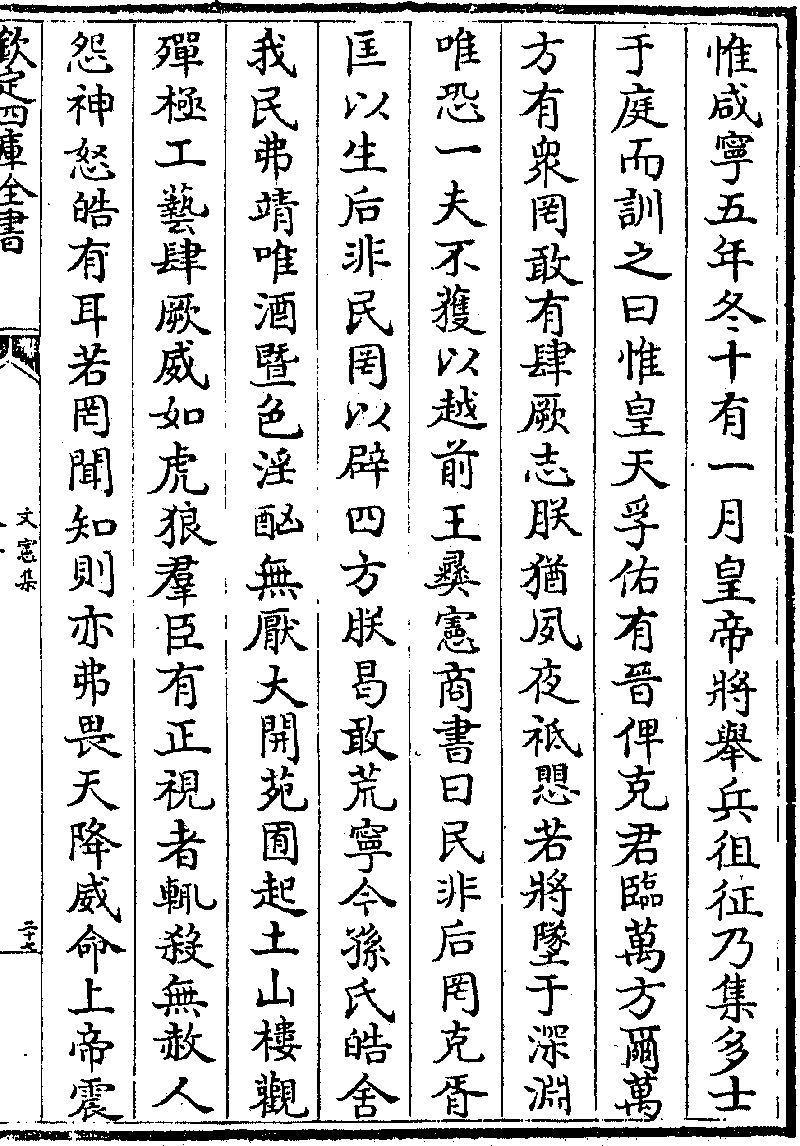 惟咸寧五年冬十有一月皇帝將舉兵徂征乃集多士
于庭而訓之曰惟皇天孚佑有晉俾克君臨萬方爾萬
方有衆罔敢有肆厥志朕猶夙夜祗愳若將墜于深淵
唯恐一夫不獲以越前王彞憲商書曰民非后罔克胥
匡以生后非民罔以辟四方朕曷敢荒寧今孫氏皓舍
我民弗靖唯酒暨色淫酗無厭大開苑囿起土山樓觀
殫極工藝肆厥威如虎狼羣臣有正視者輒殺無赦人
怨神怒皓有耳若罔聞知則亦弗畏天降威命上帝震
欽定四庫全書
文憲集
二十七